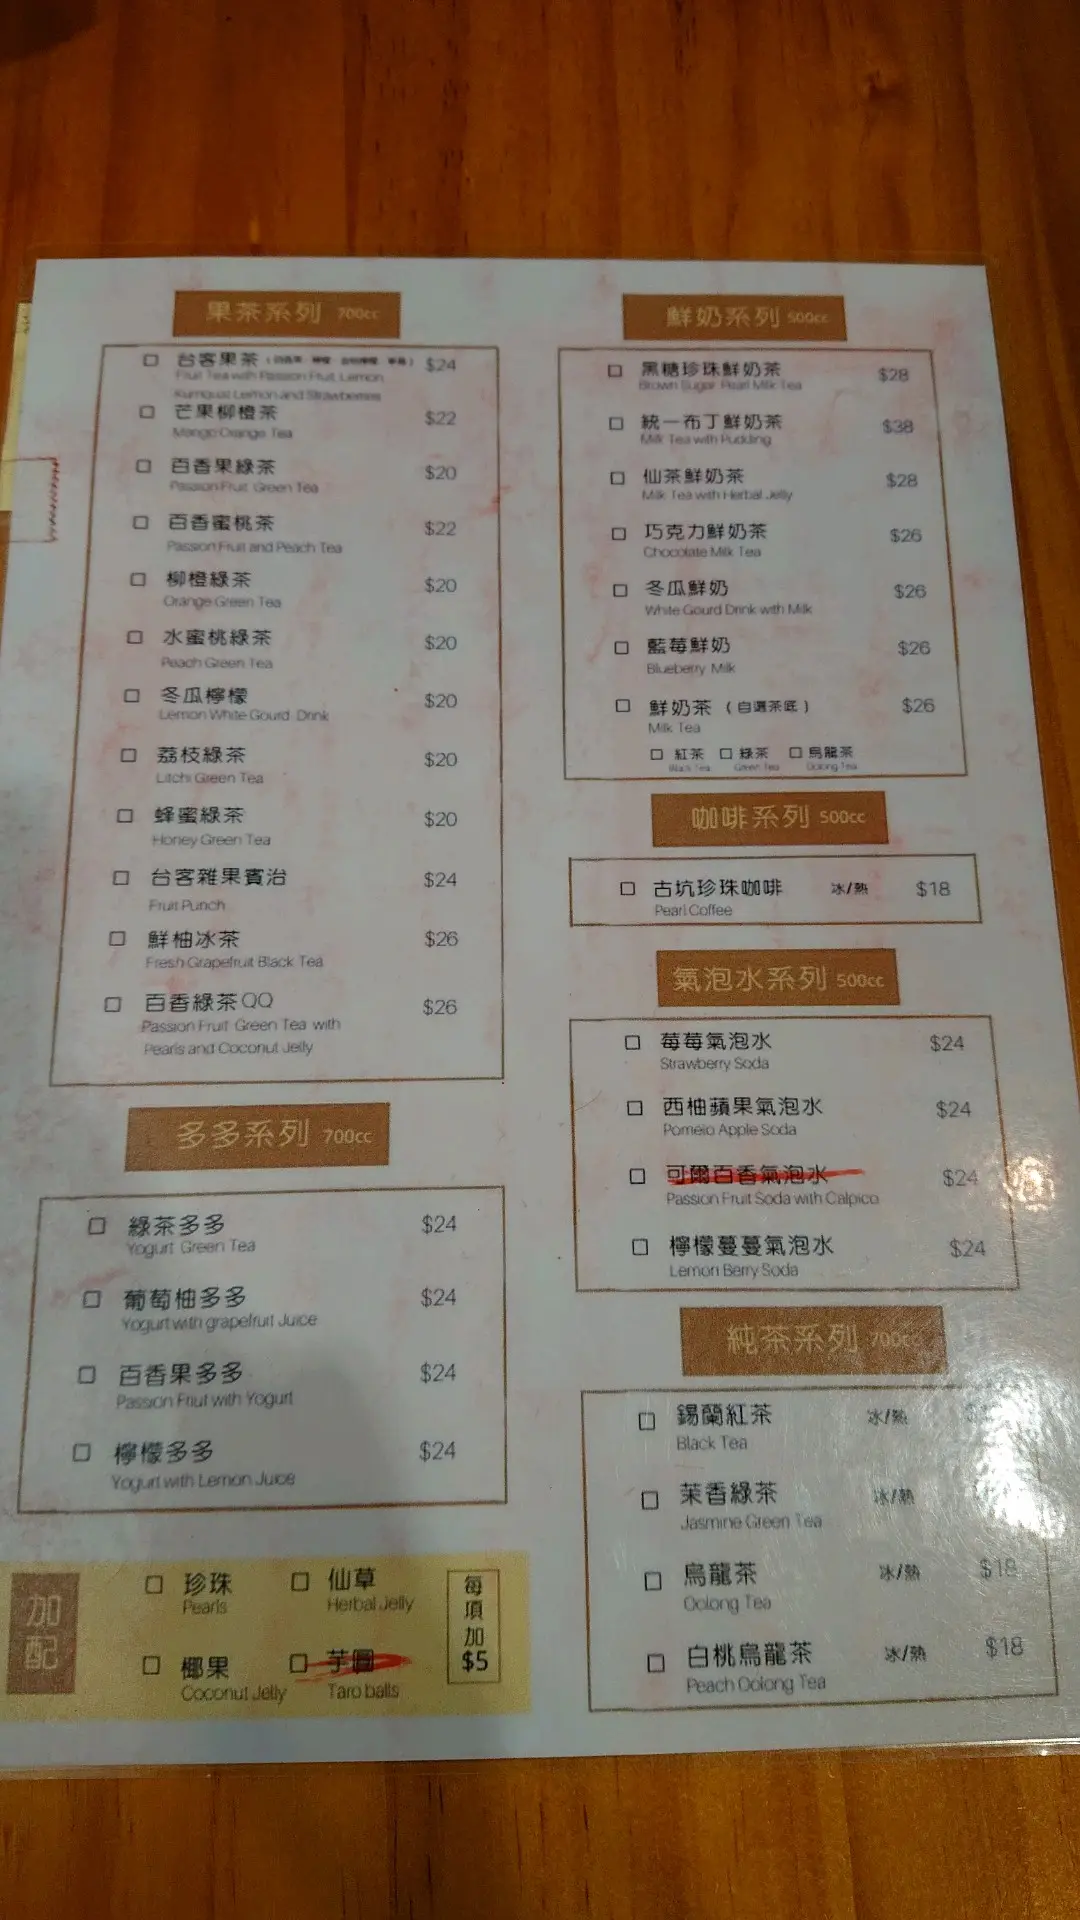 果茶系列 700cc
台客果茶 $24
Fruit Tea with Passion Fruit, Lemon
Kumquat Lemon and Strawberries
芒果柳橙茶 $22
Mango Orange Tea
百香果綠茶 $20
Passion Fruit Green Tea
百香蜜桃茶 $22
Passion Fruit and Peach Tea
柳橙綠茶 $20
Orange Green Tea
水蜜桃綠茶 $20
Peach Green Tea
冬瓜檸檬 $20
Lemon White Gourd Drink
荔枝綠茶 $20
Litchi Green Tea
蜂蜜綠茶 $20
Honey Green Tea
台客雜果賓治 $24
Fruit Punch
鮮柚冰茶 $26
Fresh Grapefruit Black Tea
百香綠茶QQ $26
Passion Fruit Green Tea with
Pearls and Coconut Jelly
多多系列 700cc
綠茶多多 $24
Yogurt Green Tea
葡萄柚多多 $24
Yogurt with grapefruit Juice
百香果多多 $24
Passion Friut with Yogurt
檸檬多多 $24
Yogurt with Lemon Juice
加配
珍珠 仙草
Pearls Herbal Jelly
椰果 芋圓
Coconut Jelly Taro balls
每項加$5
鮮奶系列 500cc
黑糖珍珠鮮奶茶 $28
Brown Sugar Pearl Milk Tea
統一布丁鮮奶茶 $38
Milk Tea with Pudding
仙茶鮮奶茶 $28
Milk Tea with Herbal Jelly
巧克力鮮奶茶 $26
Chocolate Milk Tea
冬瓜鮮奶 $26
White Gourd Drink with Milk
藍莓鮮奶 $26
Blueberry Milk
鮮奶茶（自選茶底） $26
Milk Tea
紅茶 綠茶 烏龍茶
Black Tea Green Tea Oolong Tea
咖啡系列 500cc
古坑珍珠咖啡 冰/熱 $18
Pearl Coffee
氣泡水系列 500cc
莓莓氣泡水 $24
Strawberry Soda
西柚蘋果氣泡水 $24
Pomelo Apple Soda
可爾百香氣泡水 $24
Passion Fruit Soda with Calpico
檸檬蔓蔓氣泡水 $24
Lemon Berry Soda
純茶系列 700cc
錫蘭紅茶 冰/熱
Black Tea
茉香綠茶 冰/熱
Jasmine Green Tea
烏龍茶 冰/熱 $18
Oolong Tea
白桃烏龍茶 冰/熱 $18
Peach Oolong Tea